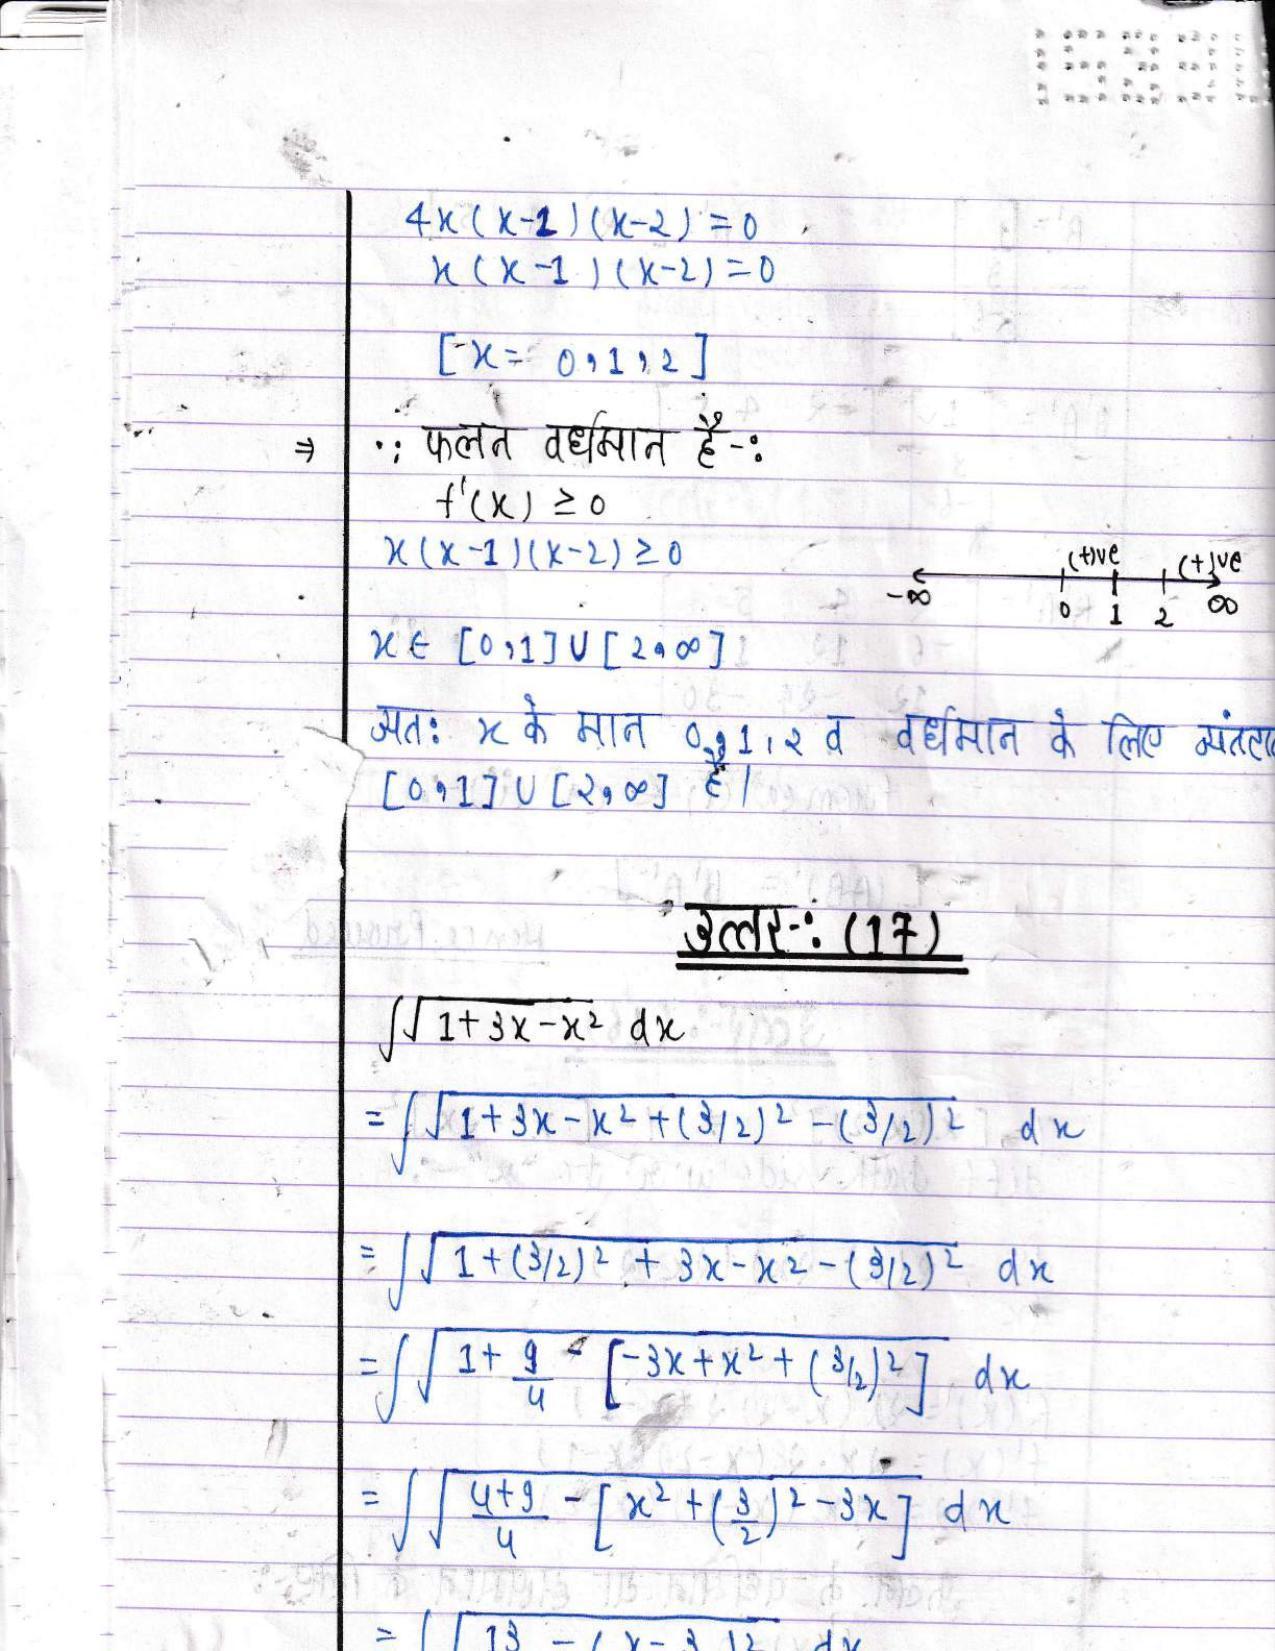 4x(x-1)(x-2)=0
x(x-1)(x-2)=0
[x= 0,1,2]
⇒ ∵ फलन वर्धमान है-:
f'(x) ≥ 0
x(x-1)(x-2) ≥ 0
(+)ve (+)ve
-∞ 0 1 2 ∞
x ∈ [0,1] ∪ [2,∞]
अतः x के मान 0,1,2 व वर्धमान के लिए
[0,1] ∪ [2,∞] है।
उत्तर-: (17)
∫√1+3x-x² dx
= ∫√1+3x-x²+(3/2)²-(3/2)² dx
= ∫√1+(3/2)²+3x-x²-(3/2)² dx
= ∫√1+9/4 - [-3x+x²+(3/2)²] dx
= ∫√4+9/4 - [x²+(3/2)²-3x] dx
= ∫√13 - (x-3 )2 dx